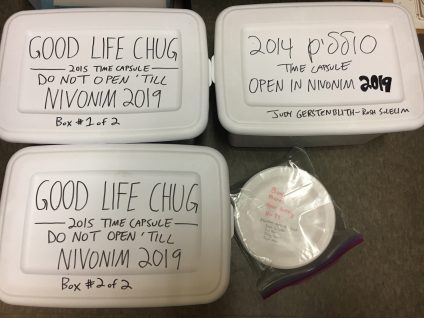 GOOD LIFE CHUG
2015 TIME CAPSULE
DO NOT OPEN 'TILL
NIVONIM 2019
Box #1 of 2
2014 סוללים
TIME CAPSULE
OPEN IN NIVONIM 2019
JUDY GERSTENBLITH - ROSH SOLELIM
GOOD LIFE CHUG
2015 TIME CAPSULE
DO NOT OPEN 'TILL
NIVONIM 2019
Box #2 of 2